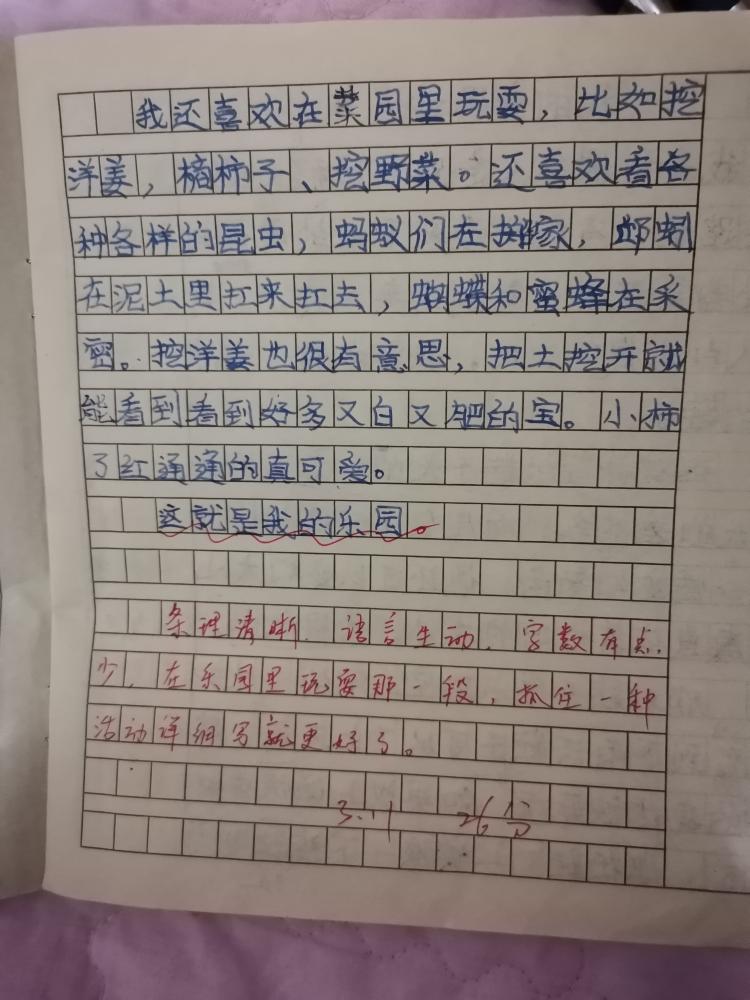 我还喜欢在菜园里玩耍，比如挖
洋姜，摘柿子、挖野菜。还喜欢看各
种各样的昆虫，蚂蚁们在搬家，蚯蚓
在泥土里扛来扛去，蝴蝶和蜜蜂在采
密。挖洋姜也很有意思，把土挖开就
能看到看到好多又白又肥的宝。小柿
了红通通的真可爱。
这就是我的乐园。
条理清晰、语言生动、字数有点
少，在乐园里玩耍那一段，抓住一种
活动详细写就更好了。
3.11 26分